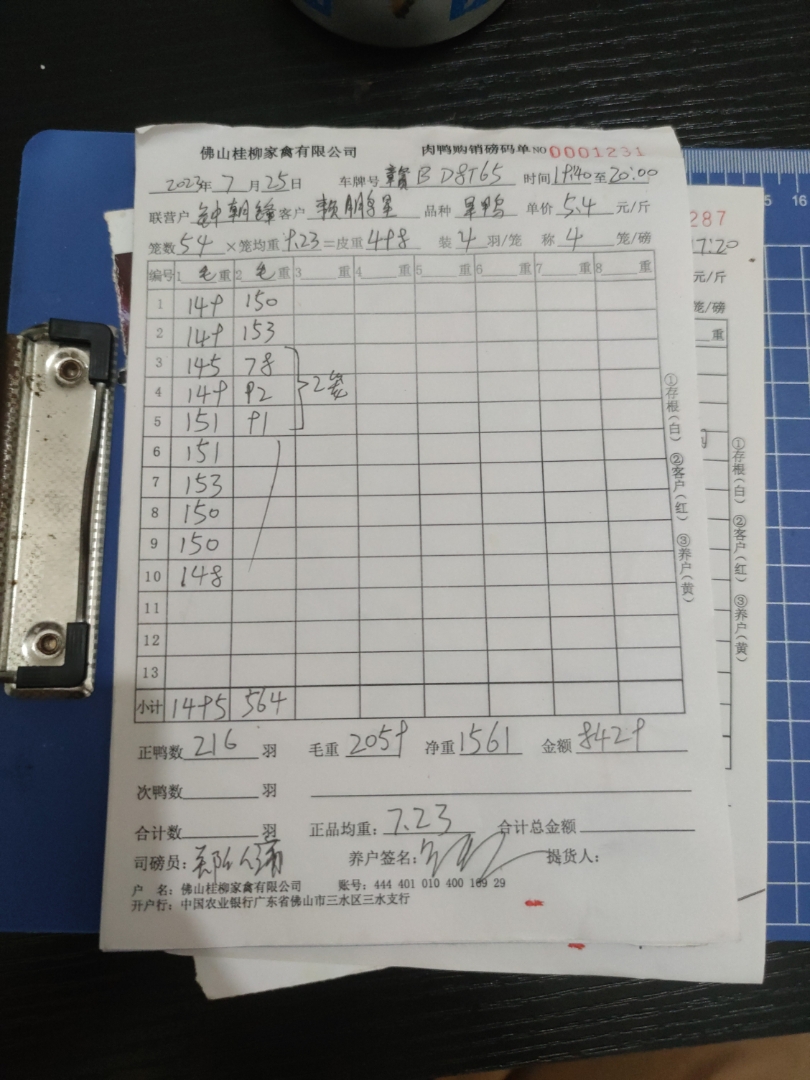 佛山桂柳家禽有限公司 肉鸭购销磅码单 NO 0001231
2023年 7 月 25日 车牌号 赣B D8T65 时间 19:40 至 20:00
联营户 钟朝锋 客户 赖鹏 品种 单价 5.4 元/斤
笼数 54 ×笼均重 9.23 =皮重 498 装 4 羽/笼 称 4 笼/磅
编号 1 毛 重 2 毛 重 3 重 4 重 5 重 6 重 7 重 8 重
1 149 150
2 149 153
3 145 78
4 149 92 2笼
5 151 91
6 151
7 153
8 150
9 150
10 148
11
12
13
小计 1495 564
正鸭数 216 羽 毛重 2059 净重 1561 金额 8429
次鸭数 羽
合计数 羽 正品均重: 7.23 合计总金额
司磅员: 养户签名: 提货人:
户 名: 佛山桂柳家禽有限公司 账号: 444 401 010 400 169 29
开户行: 中国农业银行广东省佛山市三水区三水支行
①存根(白) ②客户(红) ③养户(黄)
287
17:20
元/斤
笼/磅
重
①存根(白) ②客户(红) ③养户(黄)
15 16